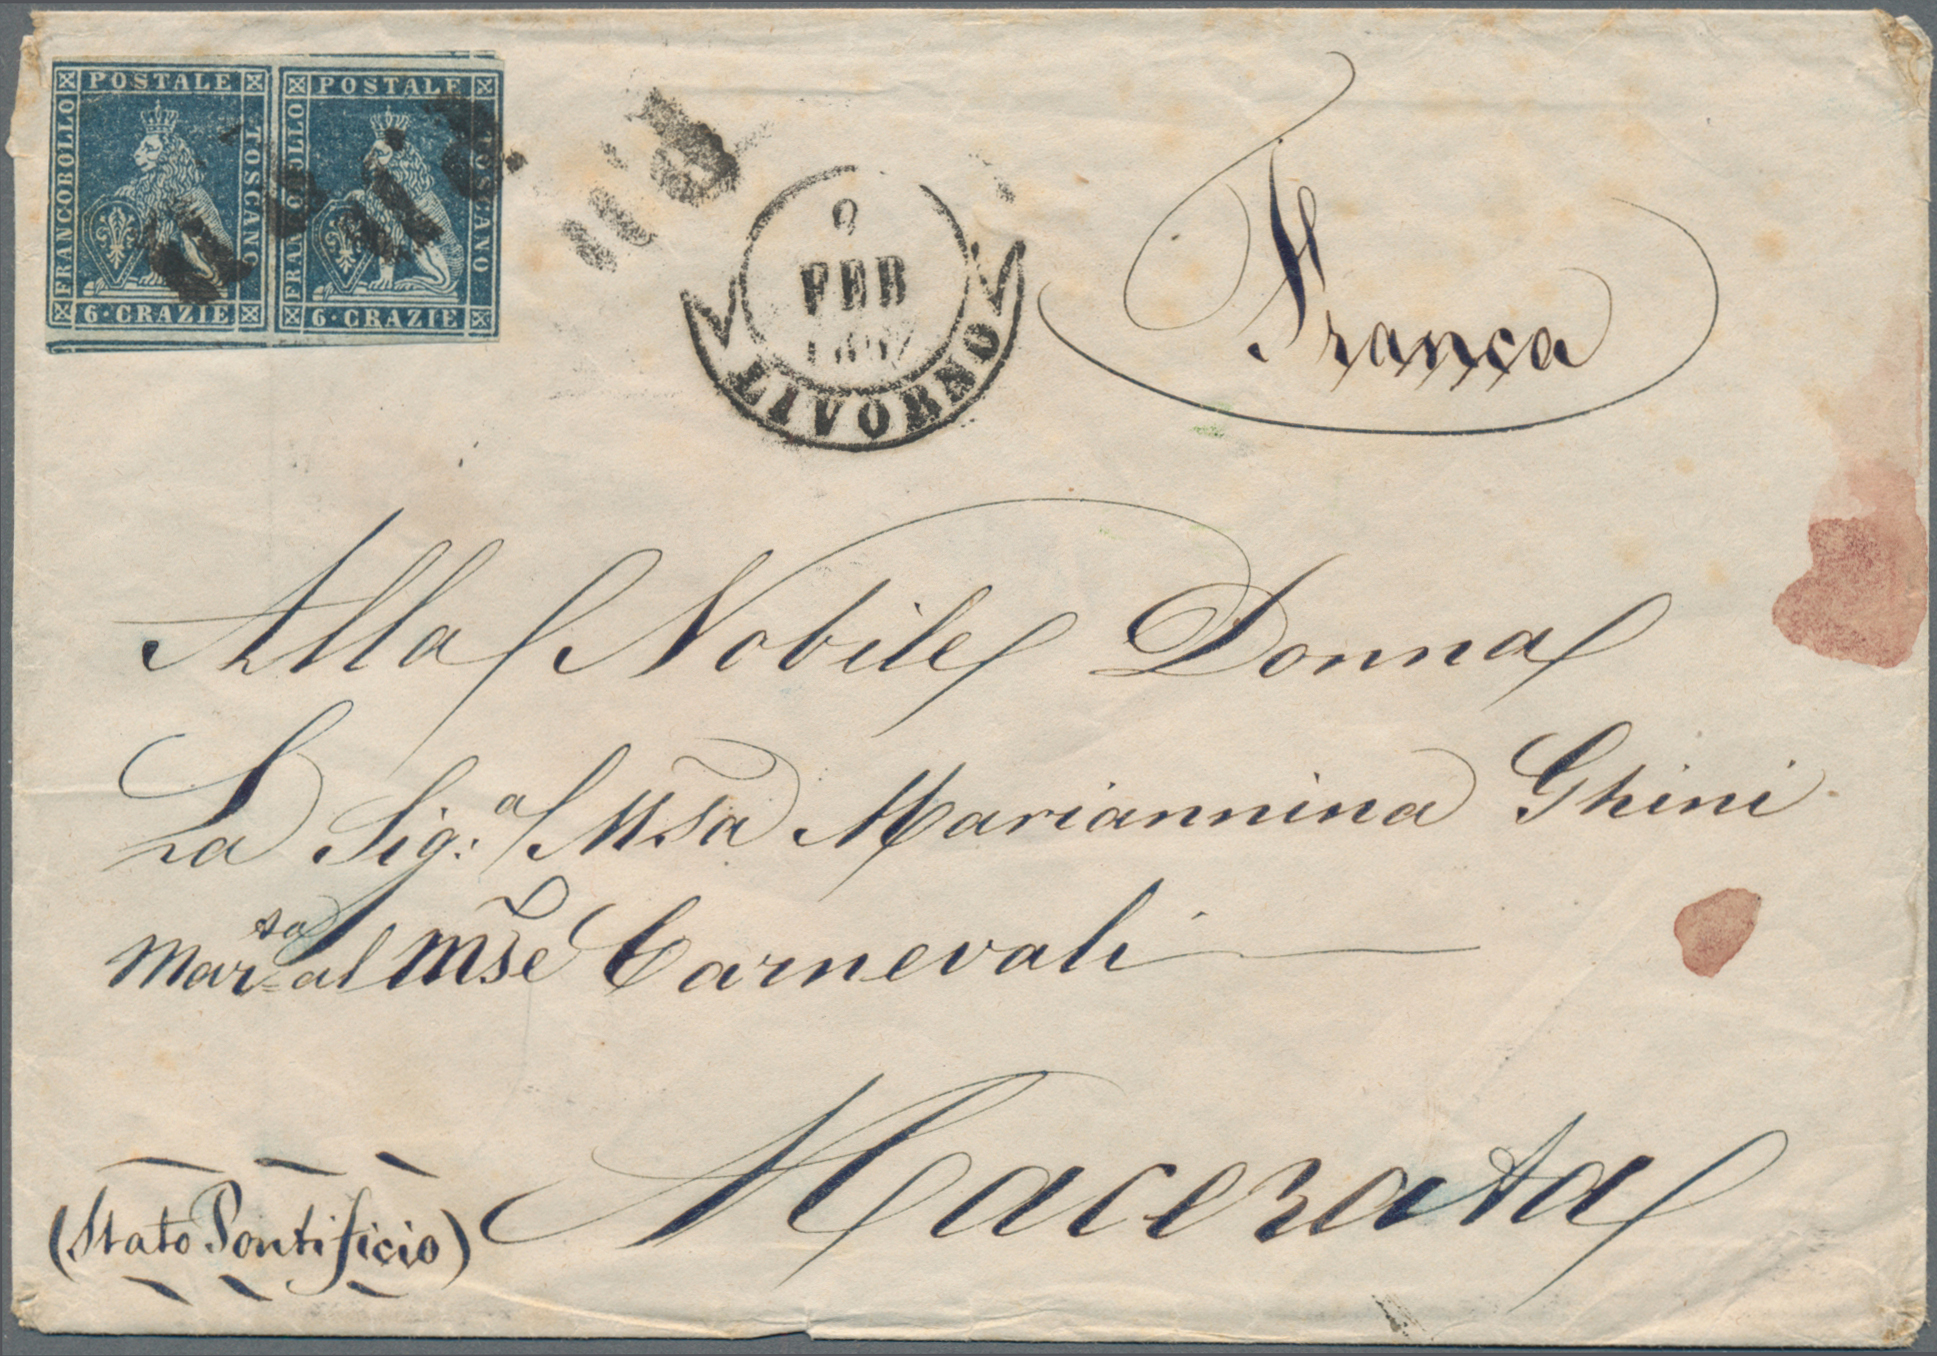 POSTALE POSTALE
FRANCOBOLLO TOSCANO FRANCOBOLLO TOSCANO
6·CRAZIE 6·CRAZIE
P.D.
FEB
LIVORNO
Franca
Alla Nobile Donna
La Sig:a Mssa Mariannina Ghini
Mar=sa al Mse Carnevali
Macerata
(Stato Pontificio)